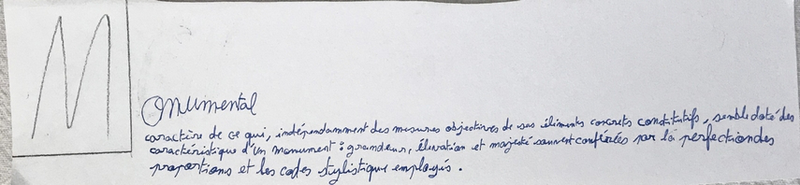 M
onumental
caractère de ce qui, indépendamment des mesures objectives de ses éléments concrets constitutifs, semble doté des
caractéristique d'un monument : grandeur, élévation et majesté souvent conférées par la perfection des
proportions et les codes stylistique employés.